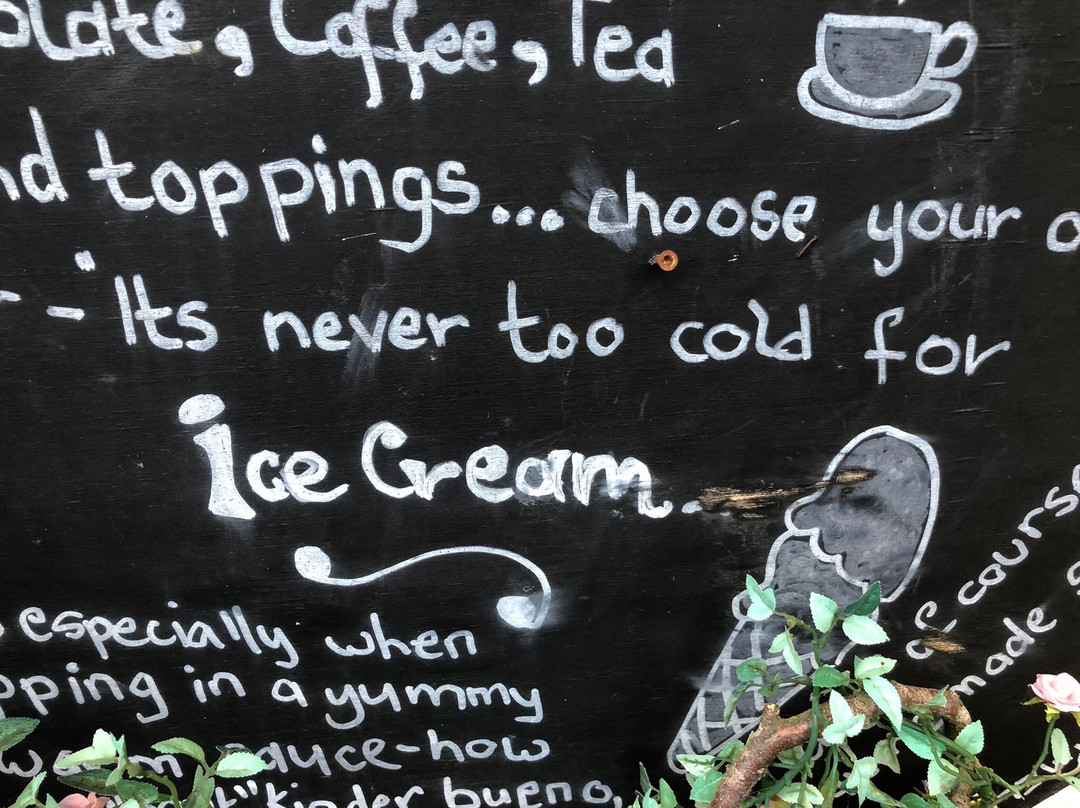 olate, Coffee, Tea
nd toppings... choose your o
- Its never too cold for
Ice Cream.
especially when
pping in a yummy
warm sauce-how
"kinder bueno,
of course
made